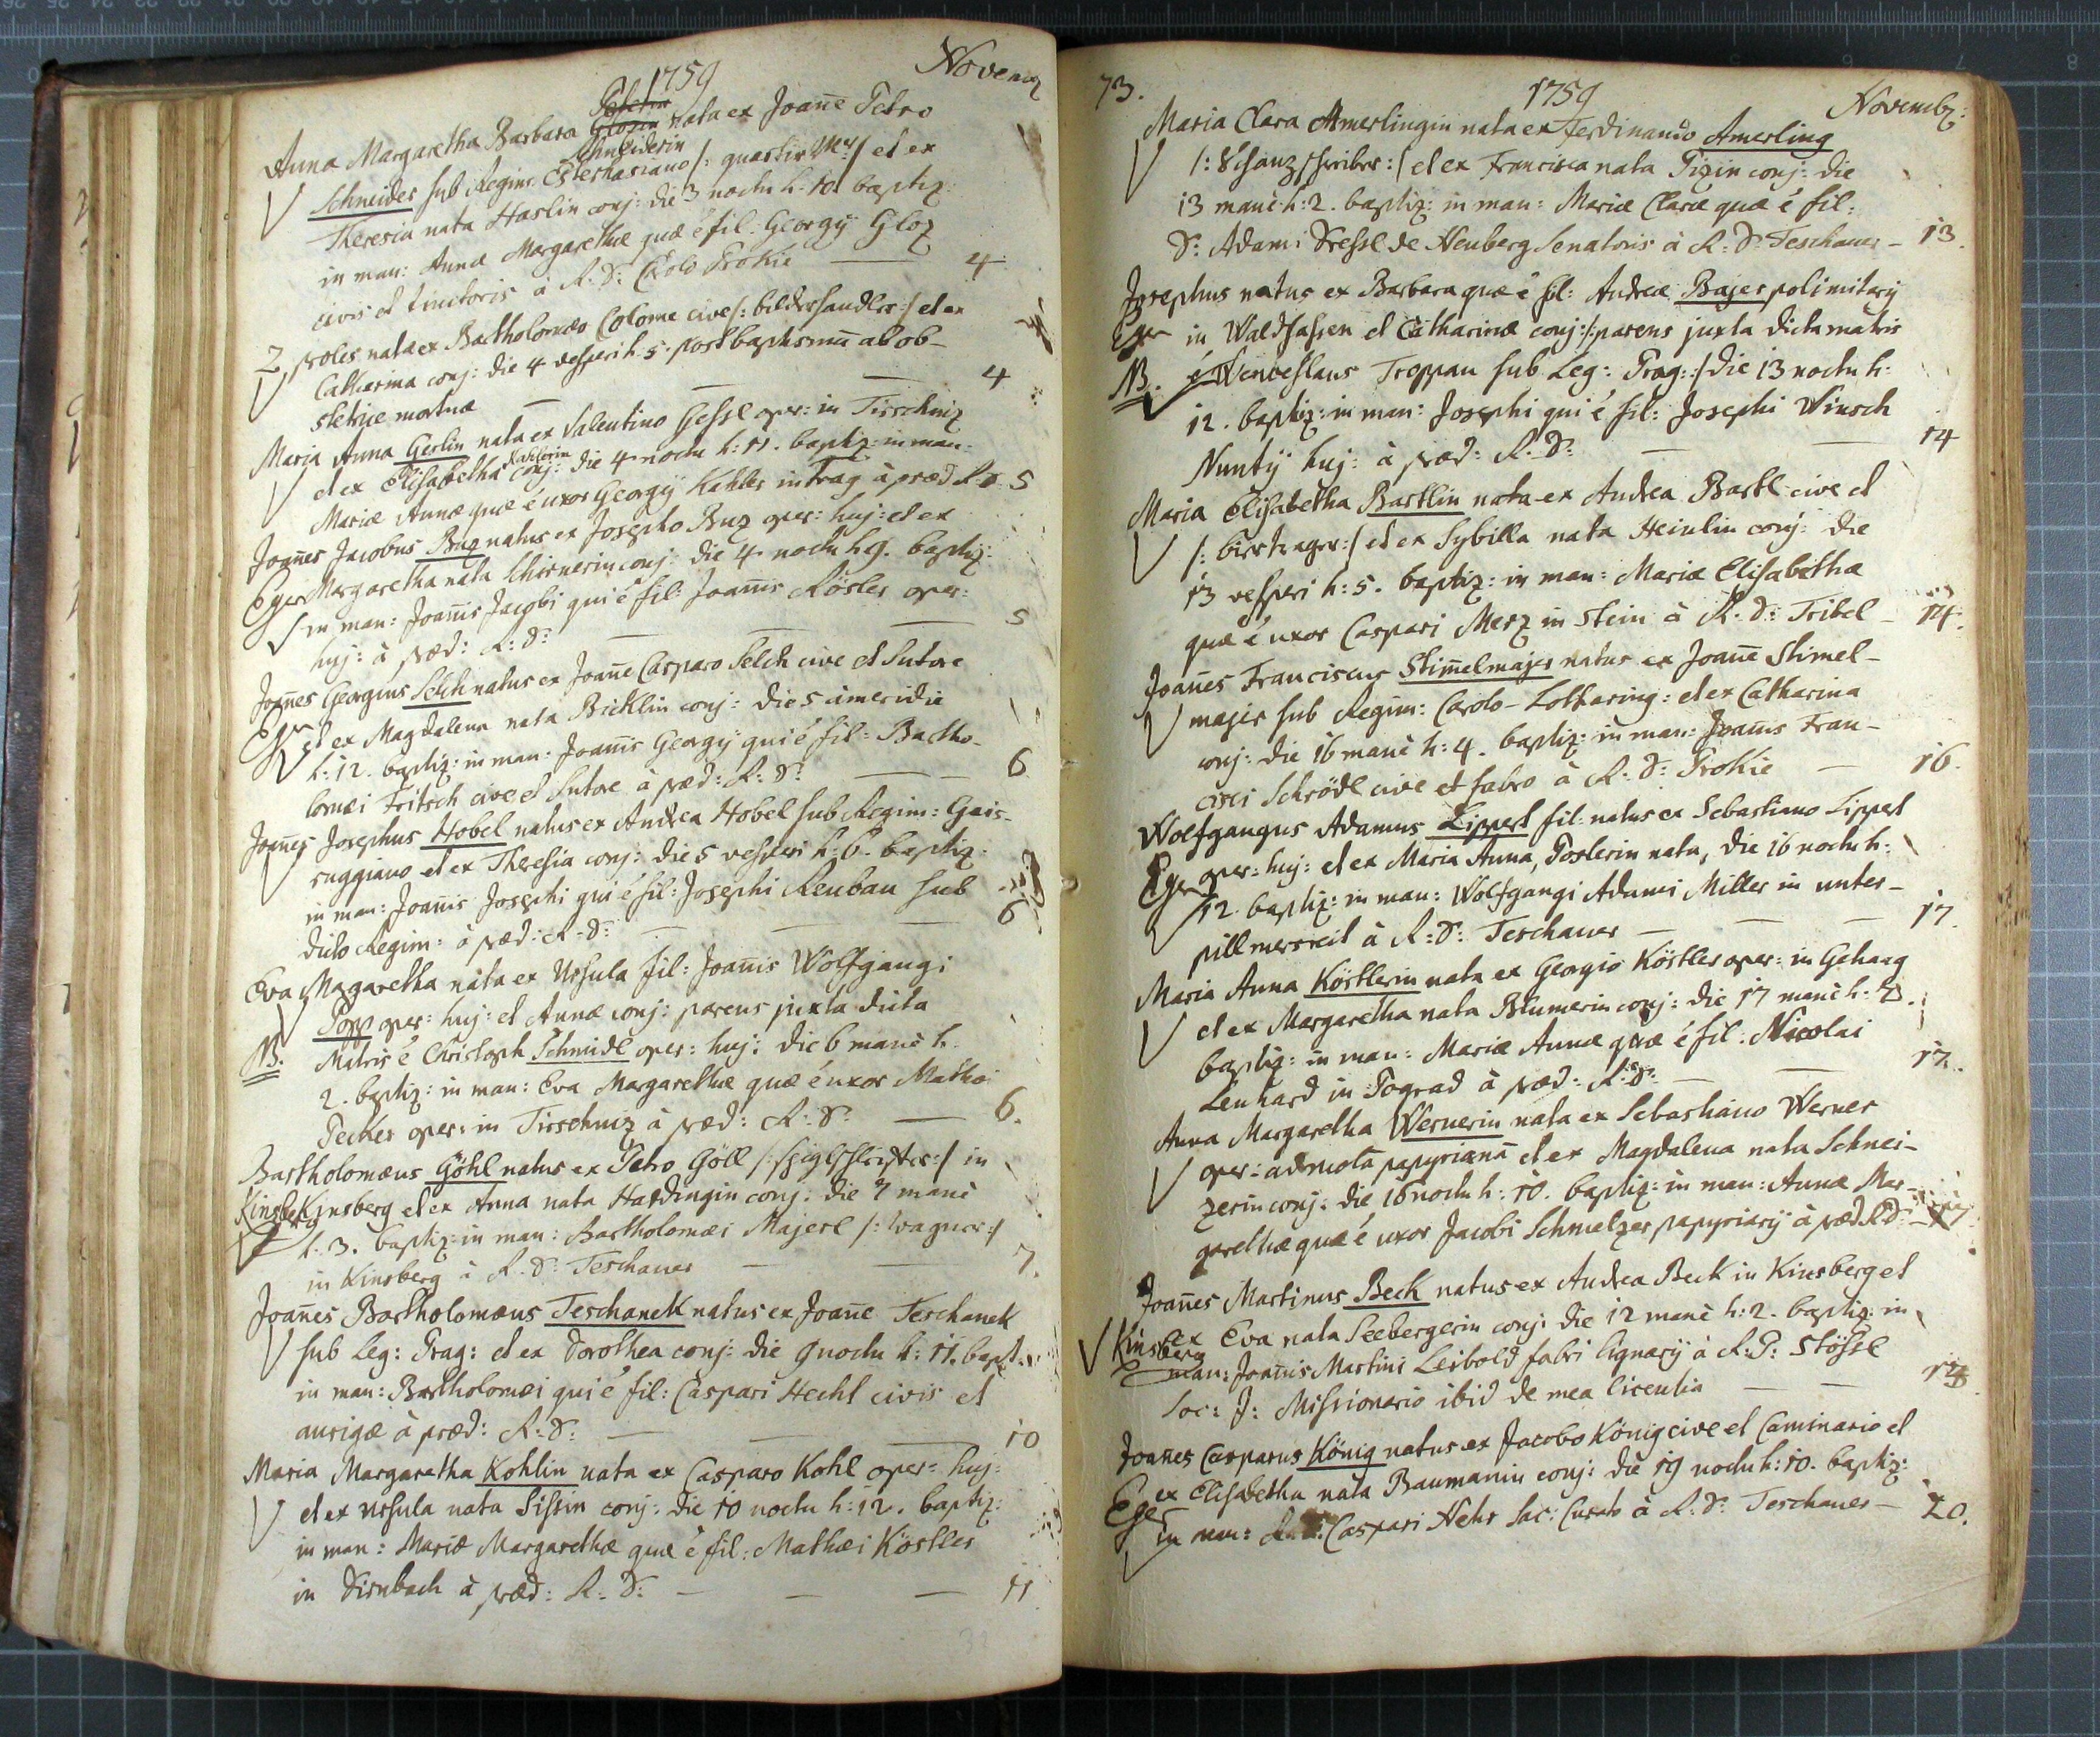 1759
Novemb
Anna Margaretha Barbara nata ex Joan̄e Petro
Schneiderin
Schneider sub Regim: Esterhasiano /: quartir Mr :/ et ex
Theresia nata Haslin conj: die 3 noctu h: 10. baptiz:
in man: Annæ Margarethæ quæ ê fil: Georgÿ Gloz
civis et tinctoris â R: D: Carolo Prokie — 4
2 proles natæ ex Bartholomæo Colome cive /: bilderhandler :/ et ex
Catharina conj: die 4 vesperi h. 5. post baptismū ab ob-
stetrice mortuæ — — — 4
Maria Anna Geslin nata ex Valentino Gessl oper: in Tirschniz
et ex Elisabetha conj: die 4 noctu h: 11. baptiz: in man:
Mariæ Annæ quæ ê uxor Georgÿ Kahler in Trag â præd: R: D: 5
Joan̄es Jacobus Buz natus ex Josepho Buz oper: huj: et ex
Eger Margaretha nata Schirnerin conj: die 4 noctu h. 9. baptiz:
in man: Joan̄is Jacobi qui ê fil: Joan̄is Rösler oper:
huj: â præd: R: D: — — — 5
Joan̄es Georgius Selch natus ex Joan̄e Casparo Selch cive et Sutore
Eger et ex Magdalena nata Bicklin conj: die 5 â meridie
h: 12. baptiz: in man: Joan̄is Georgÿ qui ê fil: Bartho-
lomæi Fritsch cive et Sutore â præd: R: D: — — 6
Joan̄es Josephus Hobel natus ex Andrea Hobel sub Regim: Gais-
ruggiano et ex Theresia conj: die 5 vesperi h: 6. baptiz:
in man: Joan̄is Josephi qui ê fil: Josephi Reubau sub
dicto Regim: â præd: R: D: — — — 6
Eva Magaretha nata ex Ursula fil: Joan̄is Wolfgangi
Popp oper: huj: et Annæ conj: parens juxta dicta
NB. Matris ê Christoph Schmidl oper: huj: die 6 manè h.
2. baptiz: in man: Eva Margarethæ quæ ê uxor Mathæi
Pecker oper: in Tirschniz â præd: R: D: — 6.
Bartholomæus Göhl natus ex Petro Göll in
Kinsberg Kinsberg et ex Anna nata Hardingin conj: die 7 manè
h: 3. baptiz: in man: Bartholomæi Majerl /: wagner :/
in Kinsberg â R: D: Teschauer — — 7.
Joan̄es Bartholomæus Teschanek natus ex Joan̄e Teschanek
sub Leg: Prag: et ex Dorothea conj: die 9 noctu h: 11. bapt:
in man: Bartholomæi qui ê fil: Caspari Hecht civis et
aurigæ â præd: R: D: — — — 10
Maria Margaretha Kohlin nata ex Casparo Kohl oper: huj:
et ex Ursula nata Sissin conj: die 10 noctu h: 12. baptiz:
in man: Mariæ Margarethæ quæ ê fil: Mathæi Köstler
in Dirnbach â præd: R: D: — — — 11
32
73.
1759
Novemb:
Maria Clara Amerlingin nata ex Ferdinando Amerling
/: Schanzschreiber :/ et ex Francisca nata Pizin conj: die
13 manè h: 2. baptiz: in man: Mariæ Claræ quæ ê fil:
D: Adami Dressl de Neuberg Senatoris â R: D: Teschauer — 13.
Josephus natus ex Barbara quæ ê fil: Andreæ Bajer polimitarÿ
Eger in Waldsassen et Catharinæ conj: /: parens juxta dicta matris
NB. ê Wenceslaus Troppau sub Leg: Prag: :/ die 13 noctu h:
12. baptiz: in man: Josephi qui ê fil: Josephi Wirsch
Nuntÿ huj: â præd: R: D: — — 14
Maria Elisabetha Bartlin nata ex Andrea Bartl cive et
/: biertrager :/ et ex Sybilla nata Heinlin conj: die
13 vesperi h: 5. baptiz: in man: Mariæ Elisabethæ
quæ ê uxor Caspari Merz in Stein â R: D: Tribel — 14.
Joan̄es Franciscus Stim̄elmajer natus ex Joan̄e Stimel-
majer sub Regim: Carolo-Lotharing: et ex Catharina
conj: die 16 manè h: 4. baptiz: in man: Joan̄is Fran-
cisci Schrödl cive et fabro â R: D: Prokie — 16.
Wolfgangus Adamus Lippert fil: natus ex Sebastiano Lippert
Eger oper: huj: et ex Maria Anna, Poslerin nata, die 16 noctu h:
12. baptiz: in man: Wolfgangi Adami Miller in unter-
pillmersreit â R: D: Teschauer — — 17.
Maria Anna Köstlerin nata ex Georgio Köstler oper: in Gehaag
et ex Margaretha nata Blumerin conj: die 17 manè h: 7.
baptiz: in man: Mariæ Annæ quæ ê fil: Nicolai
Lenhard in Pograd â præd: R: D: — — 17.
Anna Margaretha Wernerin nata ex Sebastiano Werner
oper: ad mola papyrianâ et ex Magdalena nata Schnei-
zerin conj: die 16 noctu h: 10. baptiz: in man: Annæ Mar-
garethæ quæ ê uxor Jacobi Schmelzer papyriarÿ â præd: R: D: — 17
Joan̄es Martinus Beck natus ex Andrea Beck in Kinsberg et
Kinsberg ex Eva nata Seebergerin conj: die 12 manè h: 2. baptiz: in
man: Joan̄is Martini Leibold fabri lignarÿ â R: P: Stössl
Soc: J: Missionario ibid de mea licentia — —
Joan̄es Casparus König natus ex Jacobo König cive et Caminario et
Eger ex Elisabetha nata Baumanin conj: die 19 noctu h: 10. baptiz:
in man: R: D: Caspari Hehr Sac: Curato â R: D: Teschauer — 20.